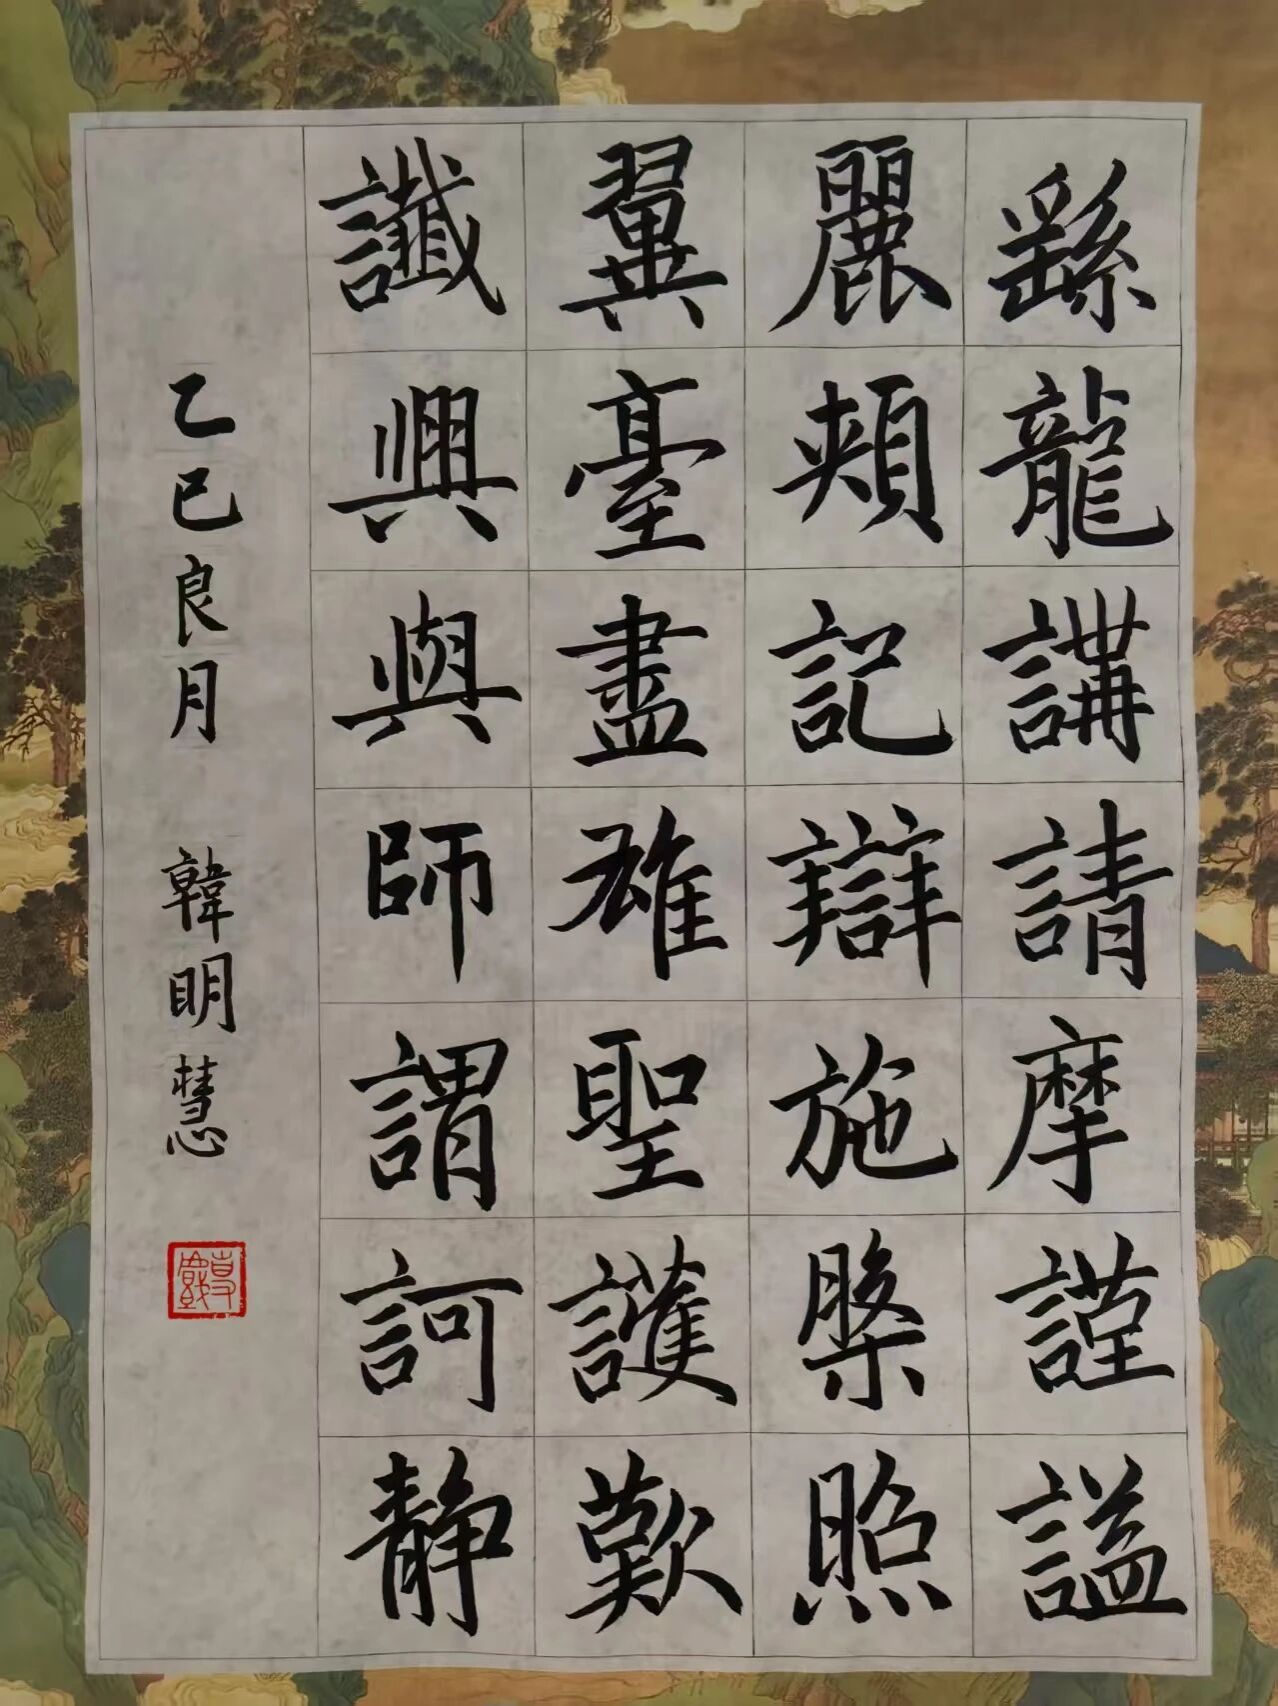 繇龍講請摩謹謚
麗頰記辯施槃照
翼臺盡雄聖護歎
讖興與師謂訶靜
乙巳良月 韓明慧